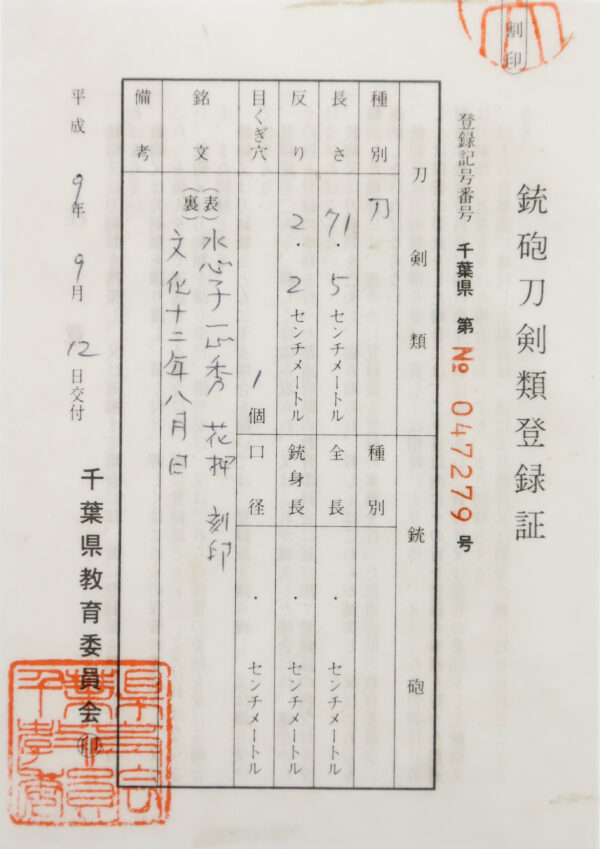 割印
銃砲刀剣類登録証
登録記号番号 千葉県 第 № 047279 号
刀剣類 銃砲
種別 刀 種別
長さ 71・5センチメートル 全長 ・センチメートル
反り 2・2センチメートル 銃身長 ・センチメートル
目くぎ穴 1個 口径 ・センチメートル
銘文 (表) 水心子正秀 花押 刻印
(裏) 文化十二年八月日
備考
平成9年9月12日交付
千葉県教育委員会 印